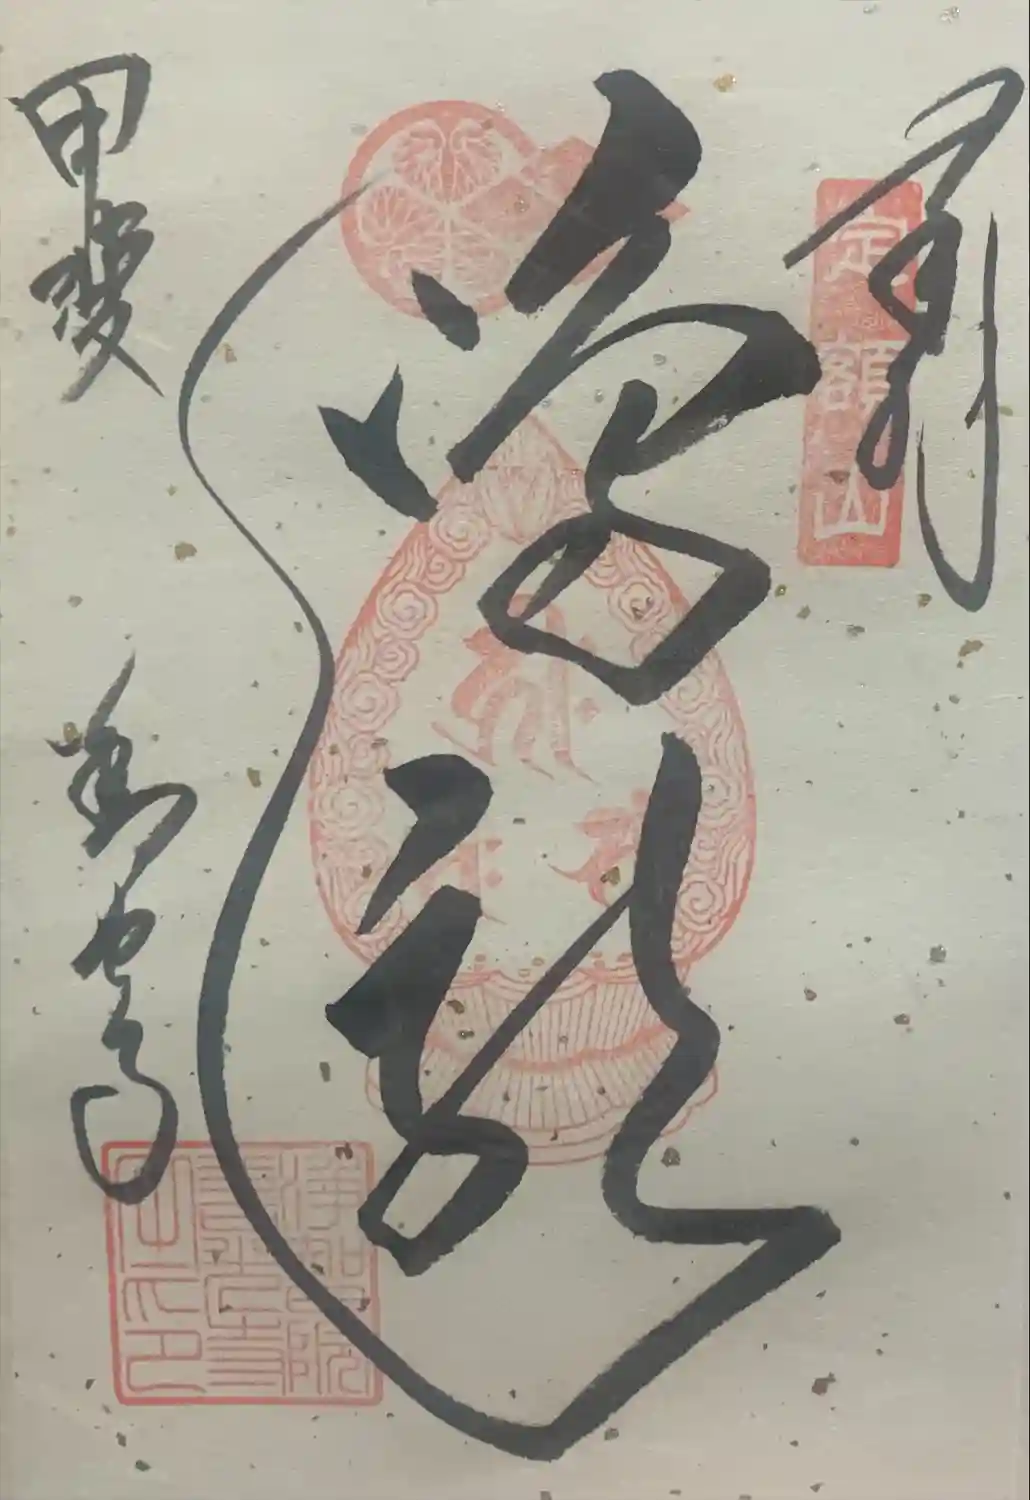 奉拝
定額山
鳴龍
甲斐 善光寺